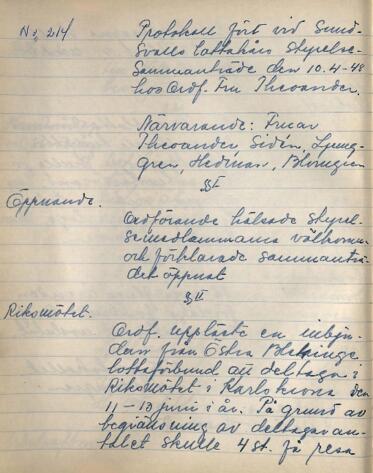 No 214
Protokoll fört vid Sund-
svalls lottakårs styrelse-
sammanträde den 10.4-48
hos Ordf. Fru Theoander.
Närvarande: Fruar
Theoander, Sidén, Ljung-
gren, Hedman, Blomgren
§ I
Öppnande.
Ordförande hälsade styrel-
semedlammarna välkomna
och förklarade sammanträ-
det öppnat
§ II
Riksmötet.
Ordf. uppläste en inbju-
dan från Östra Blekinge
lottaförbund att deltaga i
Riksmötet i Karlskrona den
11-13 juni i år. På grund av
begränsning av deltagaran-
talet skulle 4 st. få resa